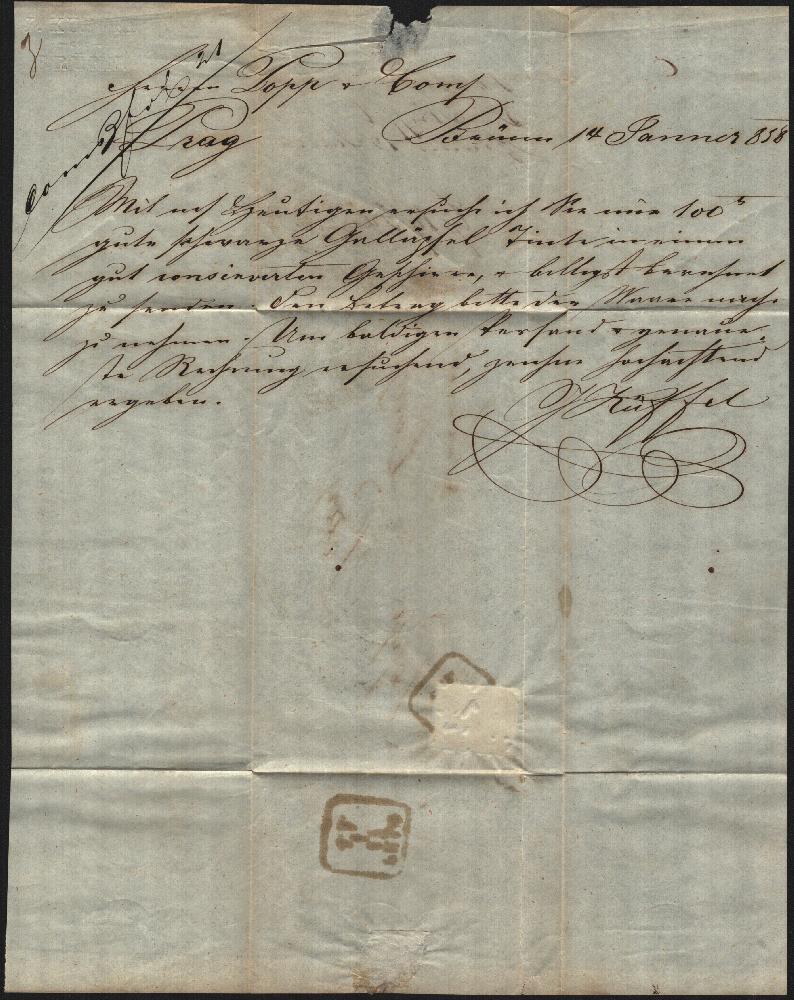 Herren Popp & Comp
Prag
Brünn 14 Janner 858
Mit nur Heutigen ersuche ich Sie mir 100 ℔
gute schwarze Galläpfel Tinte in einem
gut conservirten Geschirre, & billigst berechnet
zu senden. Den Betrag bitte der Waare nach
zu nehmen. Um baldigen Versand & genaue
ste Rechnung ersuchend, zeichne hochachtend
ergeben.
J Küffel